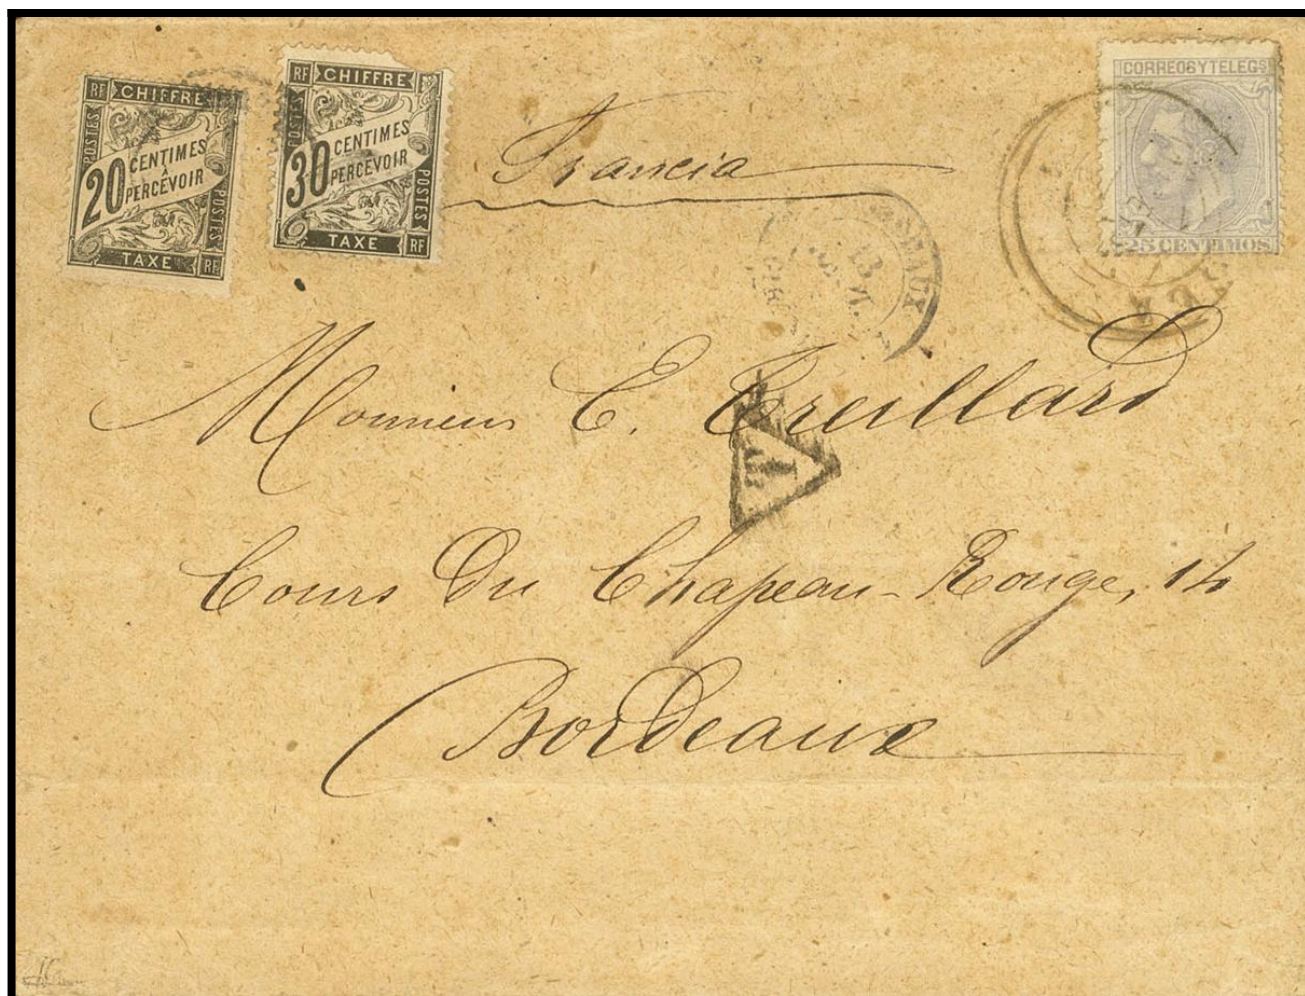 RF CHIFFRE
POSTES
20 CENTIMES
A
PERCEVOIR
POSTES
TAXE RF
RF CHIFFRE
POSTES
30 CENTIMES
A
PERCEVOIR
POSTES
TAXE RF
CORREOS Y TELEGS
25 CENTIMOS
Francia
13
T
Monsieur E. Treillard
Cours Du Chapeau-Rouge, 14
Bordeaux